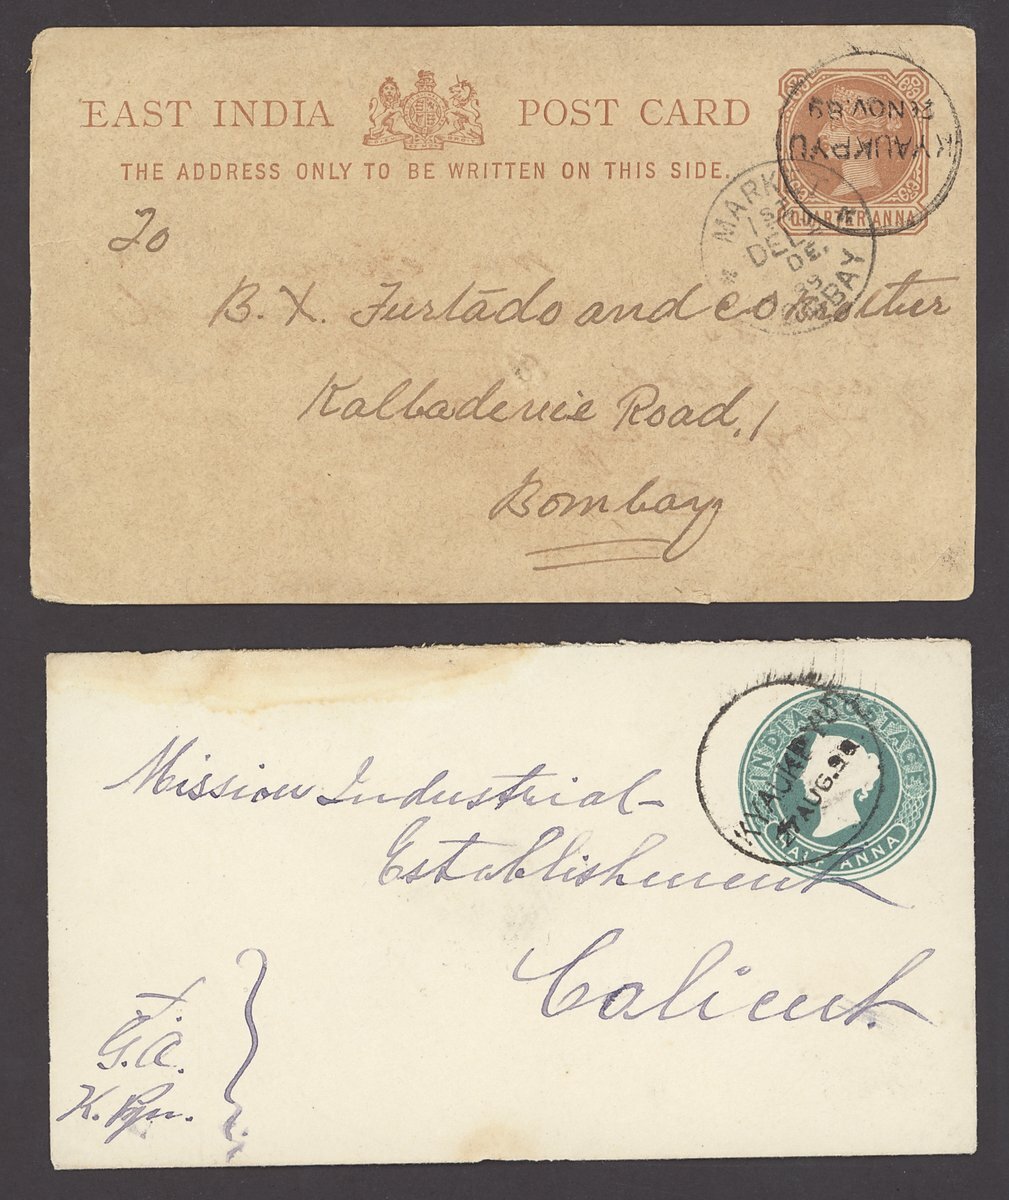 EAST INDIA POST CARD
THE ADDRESS ONLY TO BE WRITTEN ON THIS SIDE.
QUARTER ANNA
KYAUKPYU
NOV. 89
MARK
1ST
DEL
DE.
BAY
To
B. X. Furtādo and co
Kalbadervie Road, 1
Bombay
INDIA POSTAGE
HALF ANNA
KYAUKPYU
27 AUG. 98
Mission Industrial
Establishment
Calicut.
G. A.
K. Pyu.